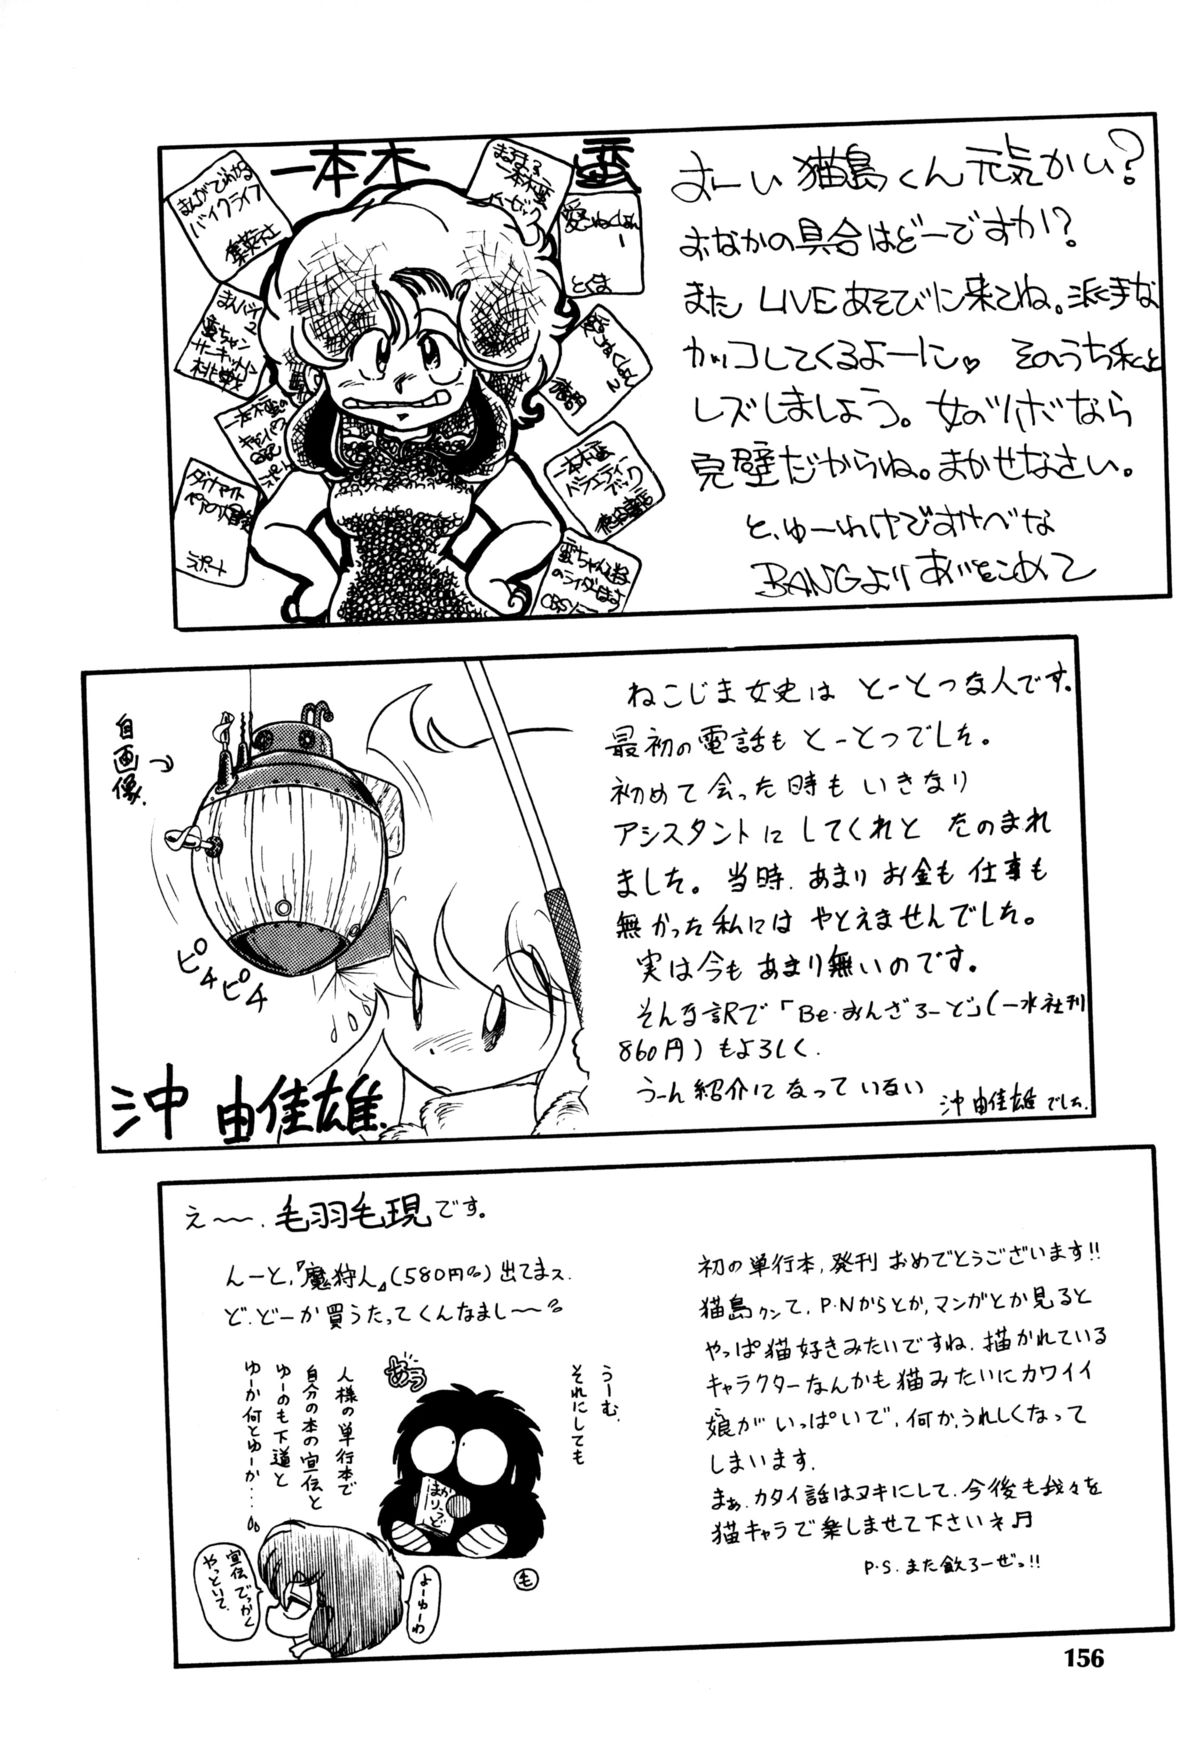 一本木 蛮
まんがでわかる
バイクライフ
集英社
まるまる
一本木蛮
とくま
まんバイ
2
蛮ちゃん
サーキットに
挑戦
一本木蛮の
キャンパス
日記
ダイナマイト
ラポート
一本木蛮
バラエティー
ブック
蛮ちゃん
のライダー
CBSソニー
よーい 猫島くん 元気かい?
おなかの具合はどーですか!?
また LIVEあそびに来てね。派手な
カッコしてくるよーに♡ そのうち私と
レズしましょう。女のツボなら
完璧だからね。まかせなさい。
と、ゆーわけですけべな
BANGより あいをこめて
自画像
ピチピチ
沖 由佳雄.
ねこじま女史は とーとつな人です。
最初の電話も とーとつでした。
初めて会った時も いきなり
アシスタントに してくれと たのまれ
ました。 当時、あまり お金も 仕事も
無かった 私には やとえませんでした。
実は今も あまり無いのです。
そんな訳で「Be・おんざろーど」(一水社刊
860円)もよろしく.
うーん 紹介に なって いない
沖 由佳雄 でした.
え〜〜. 毛羽毛現です。
んーと,『魔狩人』(580円) 出てまス.
ど.どーか買うたってくんなまし〜〜
初の単行本, 発刊 おめでとうございます!!
猫島クンて, P・Nからとか, マンガとか見ると
やっぱ猫好きみたいですね. 描かれている
キャラクターなんかも猫みたいにカワイイ
娘が いっぱいで, 何か, うれしくなって
しまいます.
まぁ. カタイ話はヌキにして. 今後も我々を
猫キャラで楽しませて下さいネ♬
P・S. また飲ろーぜっ!!
うーむ.
それにしても
あう
まかりうど
人様の単行本で
自分の本の宣伝と
ゆーのも下道と
ゆーか何とゆーか・・・・
毛
よーゆーわ
宣伝でっかく
やっといて.
156